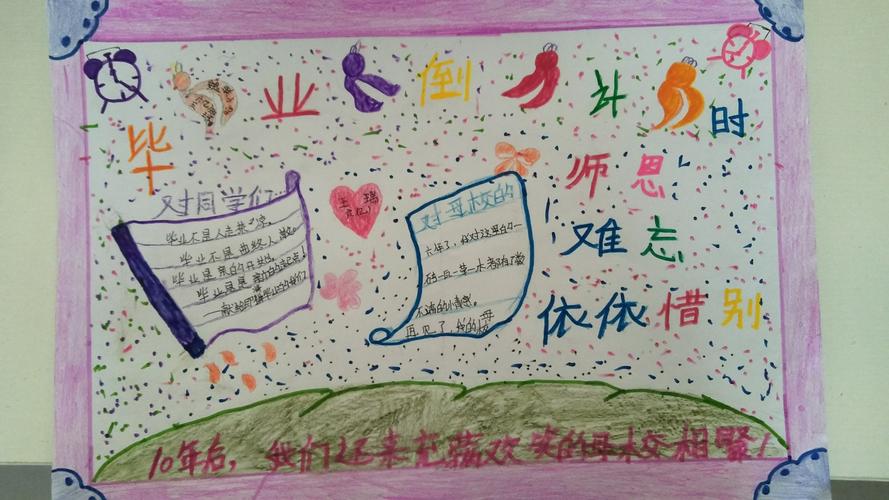 毕业倒计时
师恩
难忘
依依惜别
对同学们
毕业不是人走茶凉。
毕业不是曲终人散。
毕业是
毕业是
王
对母校的
六年了，我对这里的一
石一瓦一草一木都有了
不满的小情感。
再见了，我的母校
10年后，我们还来充满欢笑的母校相聚！